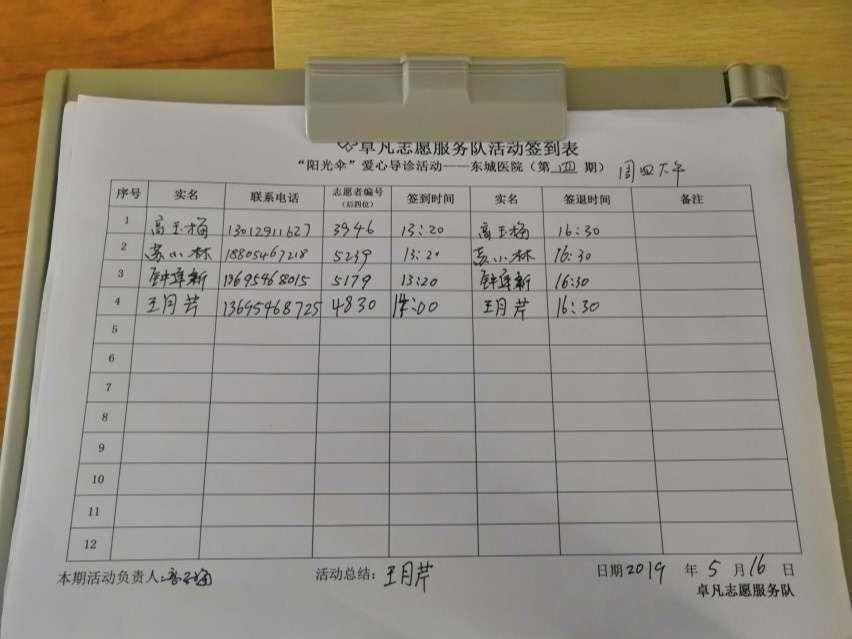 卓凡志愿服务队活动签到表
“阳光伞”爱心导诊活动——东城医院（第 四 期） 周四下午
序号 实名 联系电话 志愿者编号（后四位） 签到时间 实名 签退时间 备注
1 高玉梅 13012911627 3946 13:20 高玉梅 16:30
2 苏小林 18805467218 5239 13:20 苏小林 16:30
3 13695468015 5179 13:20 16:30
4 王月芹 13695468725 4830 14:00 王月芹 16:30
5
6
7
8
9
10
11
12
本期活动负责人: 高玉梅 活动总结: 王月芹 日期 2019 年 5 月 16 日
卓凡志愿服务队